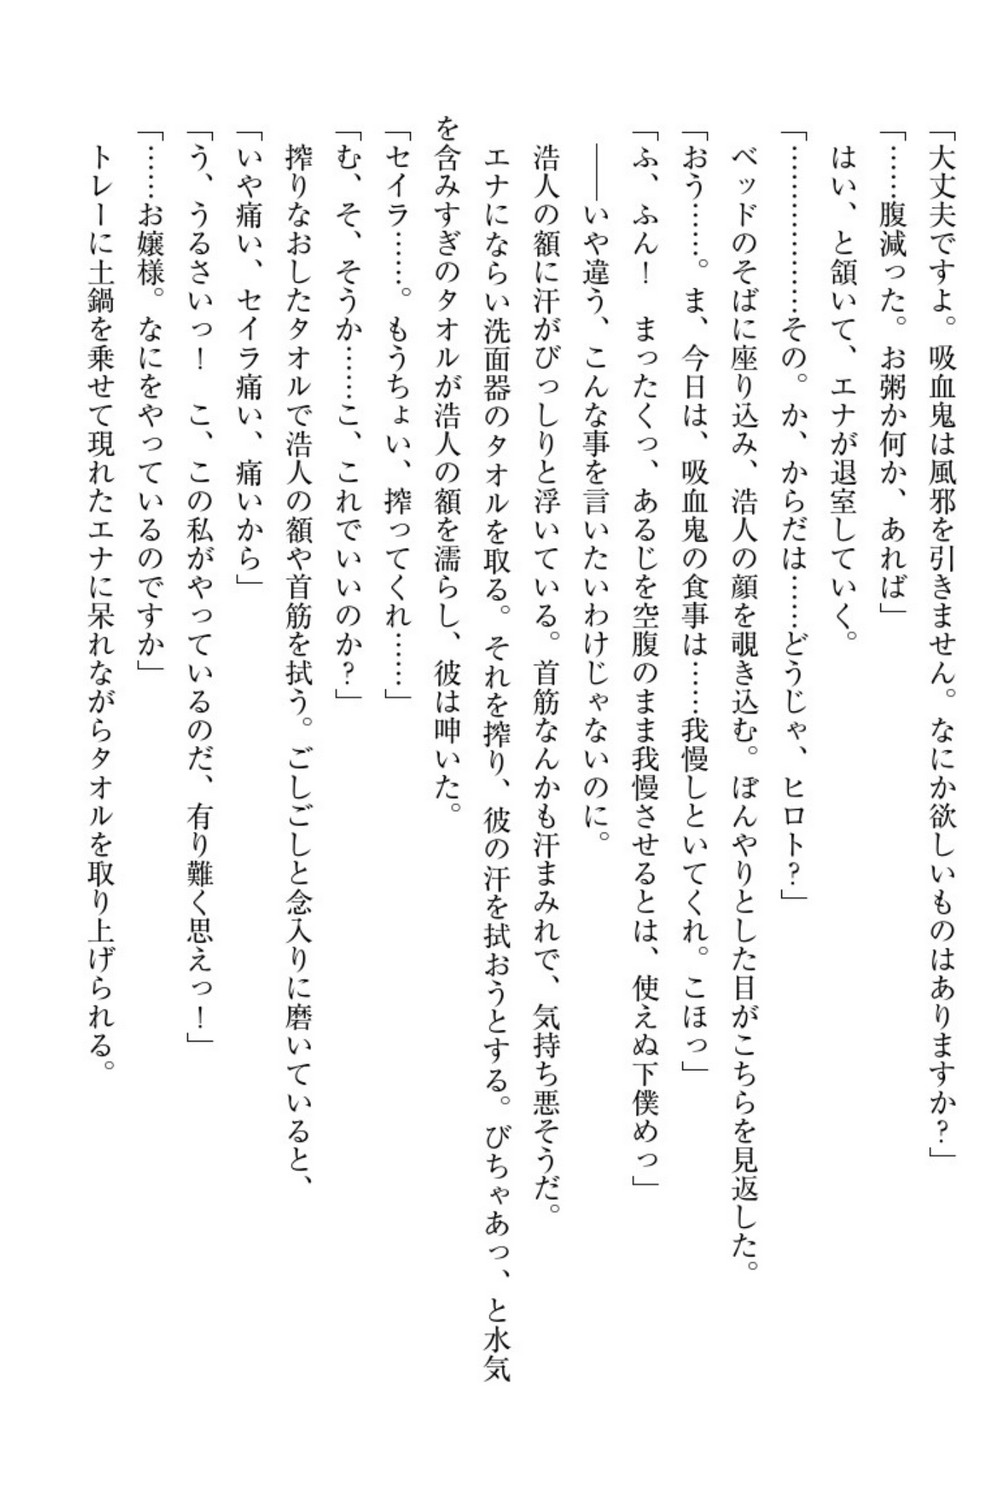 「大丈夫ですよ。吸血鬼は風邪を引きません。なにか欲しいものはありますか？」
「……腹減った。お粥か何か、あれば」
はい、と頷いて、エナが退室していく。
「………………その。か、からだは……どうじゃ、ヒロト？」
ベッドのそばに座り込み、浩人の顔を覗き込む。ぼんやりとした目がこちらを見返した。
「おう……。ま、今日は、吸血鬼の食事は……我慢しといてくれ。こほっ」
「ふ、ふん！　まったくっ、あるじを空腹のまま我慢させるとは、使えぬ下僕めっ」
――いや違う、こんな事を言いたいわけじゃないのに。
浩人の額に汗がびっしりと浮いている。首筋なんかも汗まみれで、気持ち悪そうだ。
エナにならい洗面器のタオルを取る。それを搾り、彼の汗を拭おうとする。びちゃあっ、と水気
を含みすぎのタオルが浩人の額を濡らし、彼は呻いた。
「セイラ……。もうちょい、搾ってくれ……」
「む、そ、そうか……こ、これでいいのか？」
搾りなおしたタオルで浩人の額や首筋を拭う。ごしごしと念入りに磨いていると、
「いや痛い、セイラ痛い、痛いから」
「う、うるさいっ！　こ、この私がやっているのだ、有り難く思えっ！」
「……お嬢様。なにをやっているのですか」
トレーに土鍋を乗せて現れたエナに呆れながらタオルを取り上げられる。